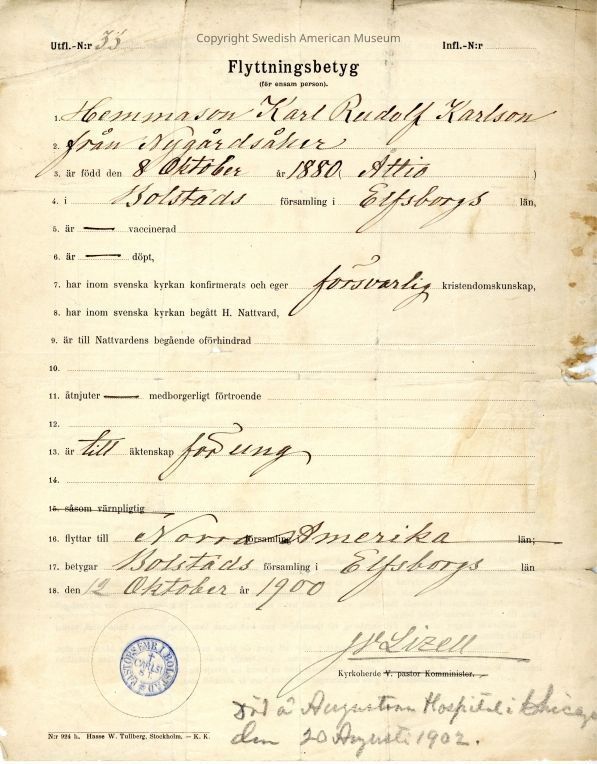 Copyright Swedish American Museum
Utfl.-N:r 33 Infl.-N:r
Flyttningsbetyg
(för ensam person).
1. Hemmason Karl Rudolf Karlson
2. från Nygårdsåker
3. är född den 8 Oktober år 1880 ( Åttio )
4. i Bolstads församling i Elfsborgs län,
5. är — vaccinerad
6. är — döpt,
7. har inom svenska kyrkan konfirmerats och eger försvarlig kristendomskunskap,
8. har inom svenska kyrkan begått H. Nattvard,
9. är till Nattvardens begående oförhindrad
10.
11. åtnjuter — medborgerligt förtroende
12.
13. är till äktenskap för ung
14.
15. såsom värnpligtig
16. flyttar till Norra församling Amerika län;
17. betygar Bolstads församling i Elfsborgs län
18. den 12 Oktober år 1900
Lizell
Kyrkoherde V. pastor Komminister.
PASTORSEMB. I BOLSTAD
CARLS
Död å Augustana Hospital i Chicago
den 20 Augusti 1902.
N:r 924 h. Hasse W. Tullberg, Stockholm. — K. K.